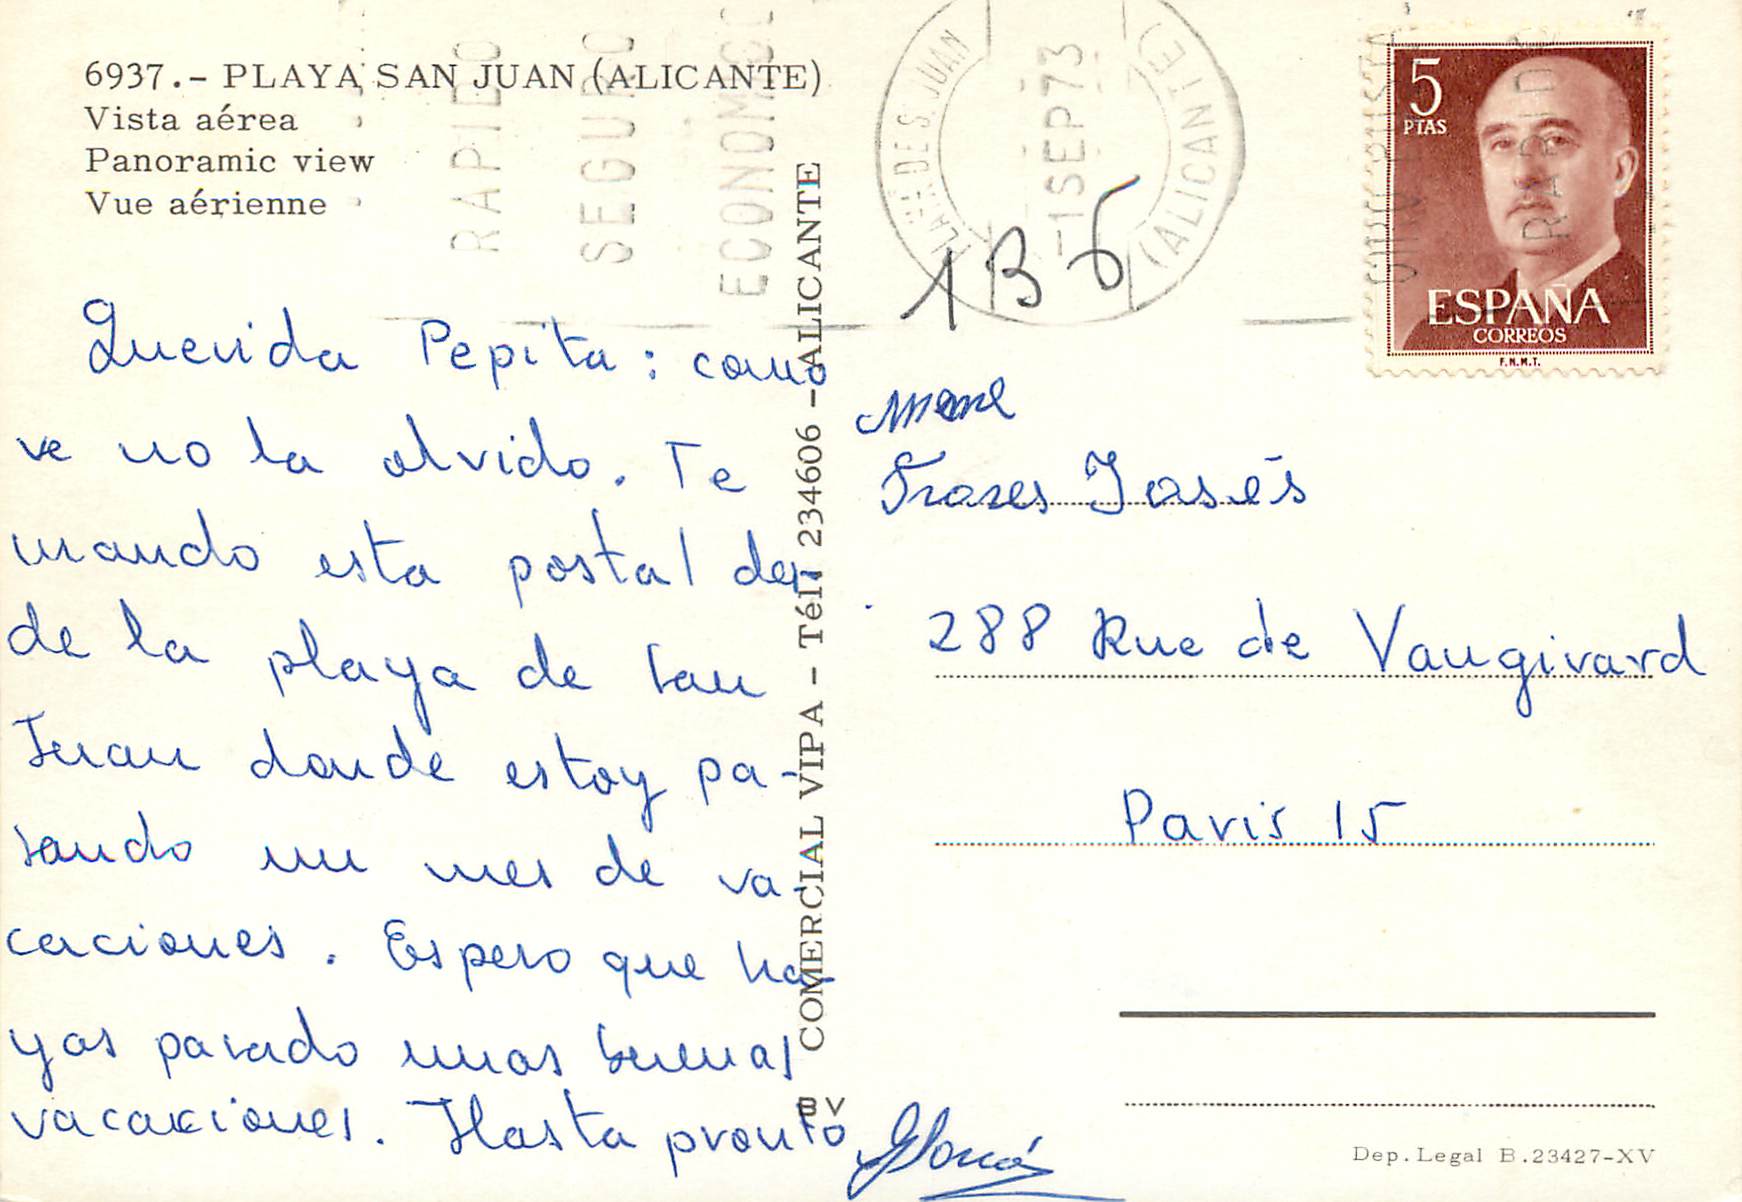 6937.- PLAYA SAN JUAN (ALICANTE)
Vista aérea
Panoramic view
Vue aérienne
RAPIDO
SEGURO
ECONOMICO
PLAYA DE S. JUAN
(ALICANTE)
-1 SEP 73
1 B 6
5
PTAS
ESPAÑA
CORREOS
F.N.M.T.
GIRO POSTAL
RAPIDO
Querida Pepita: como
ve no la olvido. Te
mando esta postal des-
de la playa de San
Juan donde estoy pa-
sando un mes de va-
caciones. Espero que ha-
yas pasado unas buenas
vacaciones. Hasta pronto
COMERCIAL VIPA - Tél. 234606 - ALICANTE
BV
288 Rue de Vaugirard
Paris 15
Dep. Legal B.23427-XV